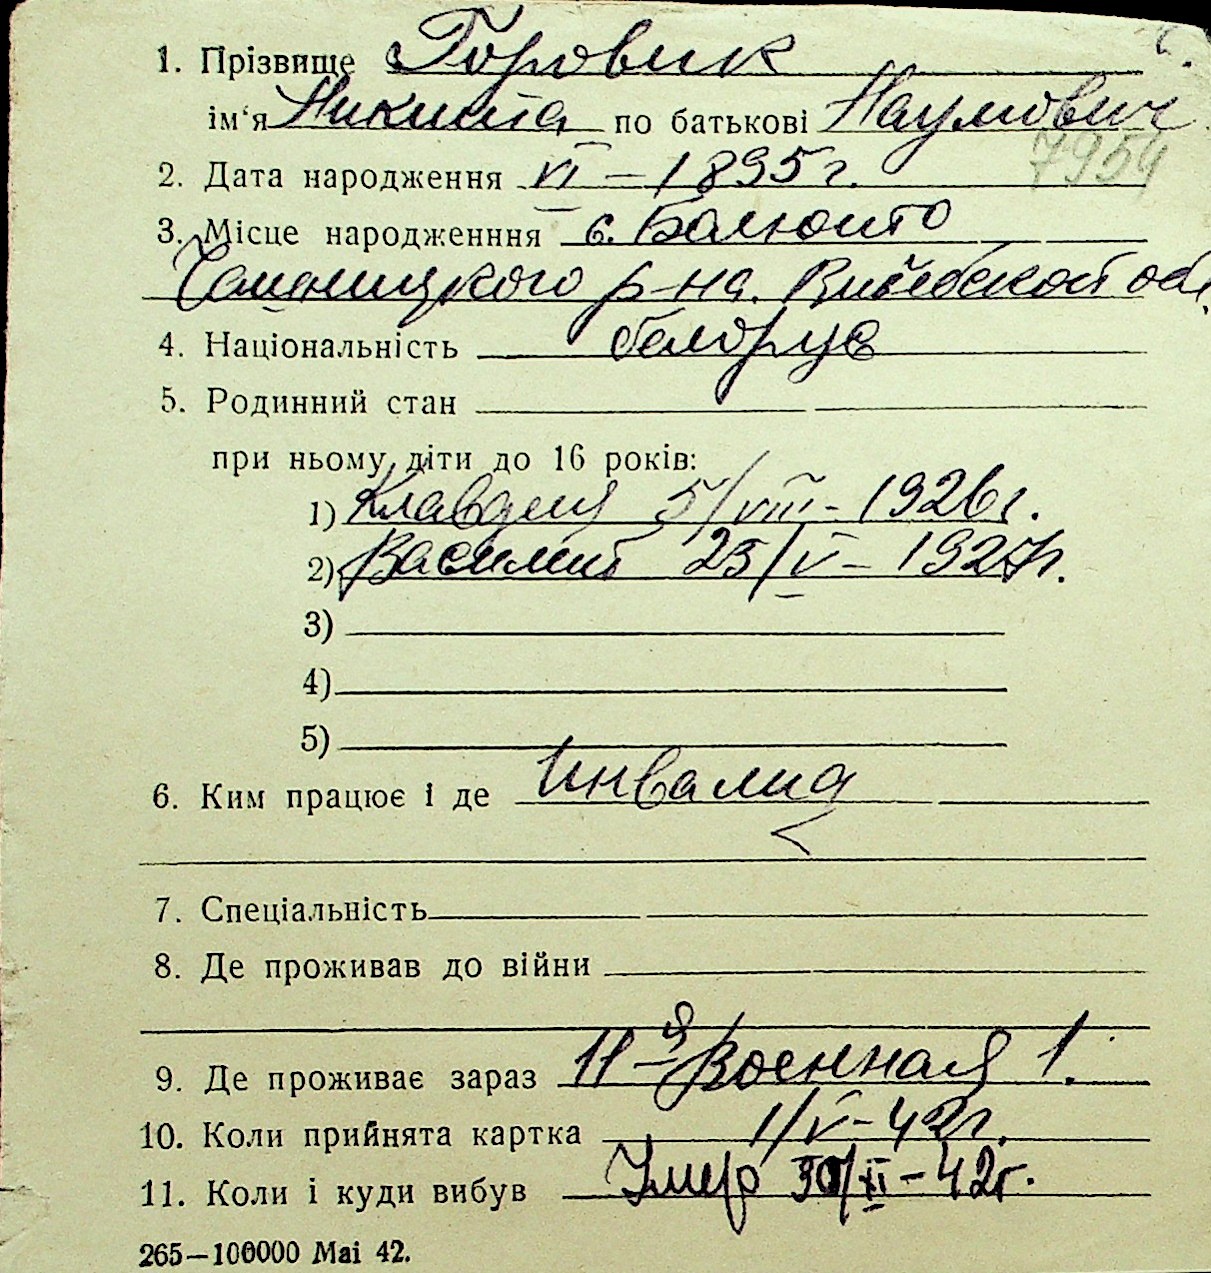 1. Прізвище Горовик
ім'я Никита по батькові Наумович
7954
2. Дата народження VI – 1895 г.
3. Місце народженння с. Балюито
Чашницкого р-на. Витебской обл.
4. Національність белорус
5. Родинний стан
при ньому діти до 16 років:
1) Клавдия 5/VIII - 1926 г.
2) Василий 23/V – 1927 г.
3)
4)
5)
6. Ким працює і де Инвалид
7. Спеціальність
8. Де проживав до війни
9. Де проживає зараз 11-я Военная 1.
10. Коли прийнята картка 1/V-42 г.
11. Коли і куди вибув Умер 30/XI – 42 г.
265—100000 Mai 42.